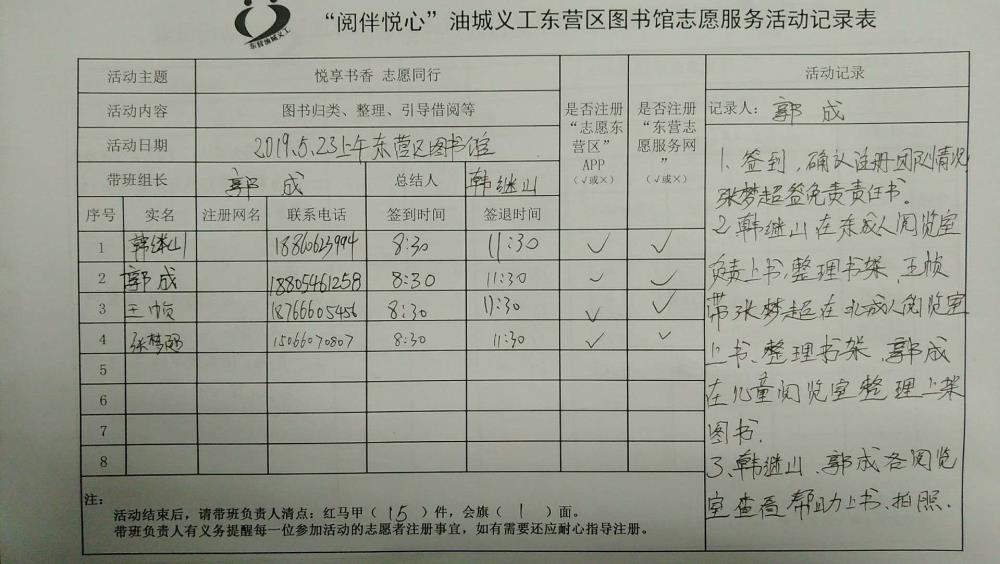 东营油城义工
“阅伴悦心”油城义工东营区图书馆志愿服务活动记录表
活动主题 悦享书香 志愿同行
活动内容 图书归类、整理、引导借阅等
活动日期 2019.5.23上午东营区图书馆
带班组长 郭成 总结人 韩继山
是否注册“志愿东营区”APP（√或×）
是否注册“东营志愿服务网”（√或×）
序号 实名 注册网名 联系电话 签到时间 签退时间
1 韩继山 18860623994 8:30 11:30 √ √
2 郭成 18805461258 8:30 11:30 √ √
3 王帧 18766605456 8:30 11:30 √ √
4 张梦超 15066070807 8:30 11:30 √ √
5
6
7
8
注：
活动结束后，请带班负责人清点：红马甲（15）件，会旗（1）面。
带班负责人有义务提醒每一位参加活动的志愿者注册事宜，如有需要还应耐心指导注册。
活动记录
记录人：郭成
1、签到，确认注册团队情况
张梦超签免责责任书。
2、韩继山在东成人阅览室
负责上书，整理书架，王帧
带张梦超在北成人阅览室
上书、整理书架，郭成
在儿童阅览室整理上架
图书.
3、韩继山、郭成各阅览
室查看帮助上书、拍照.